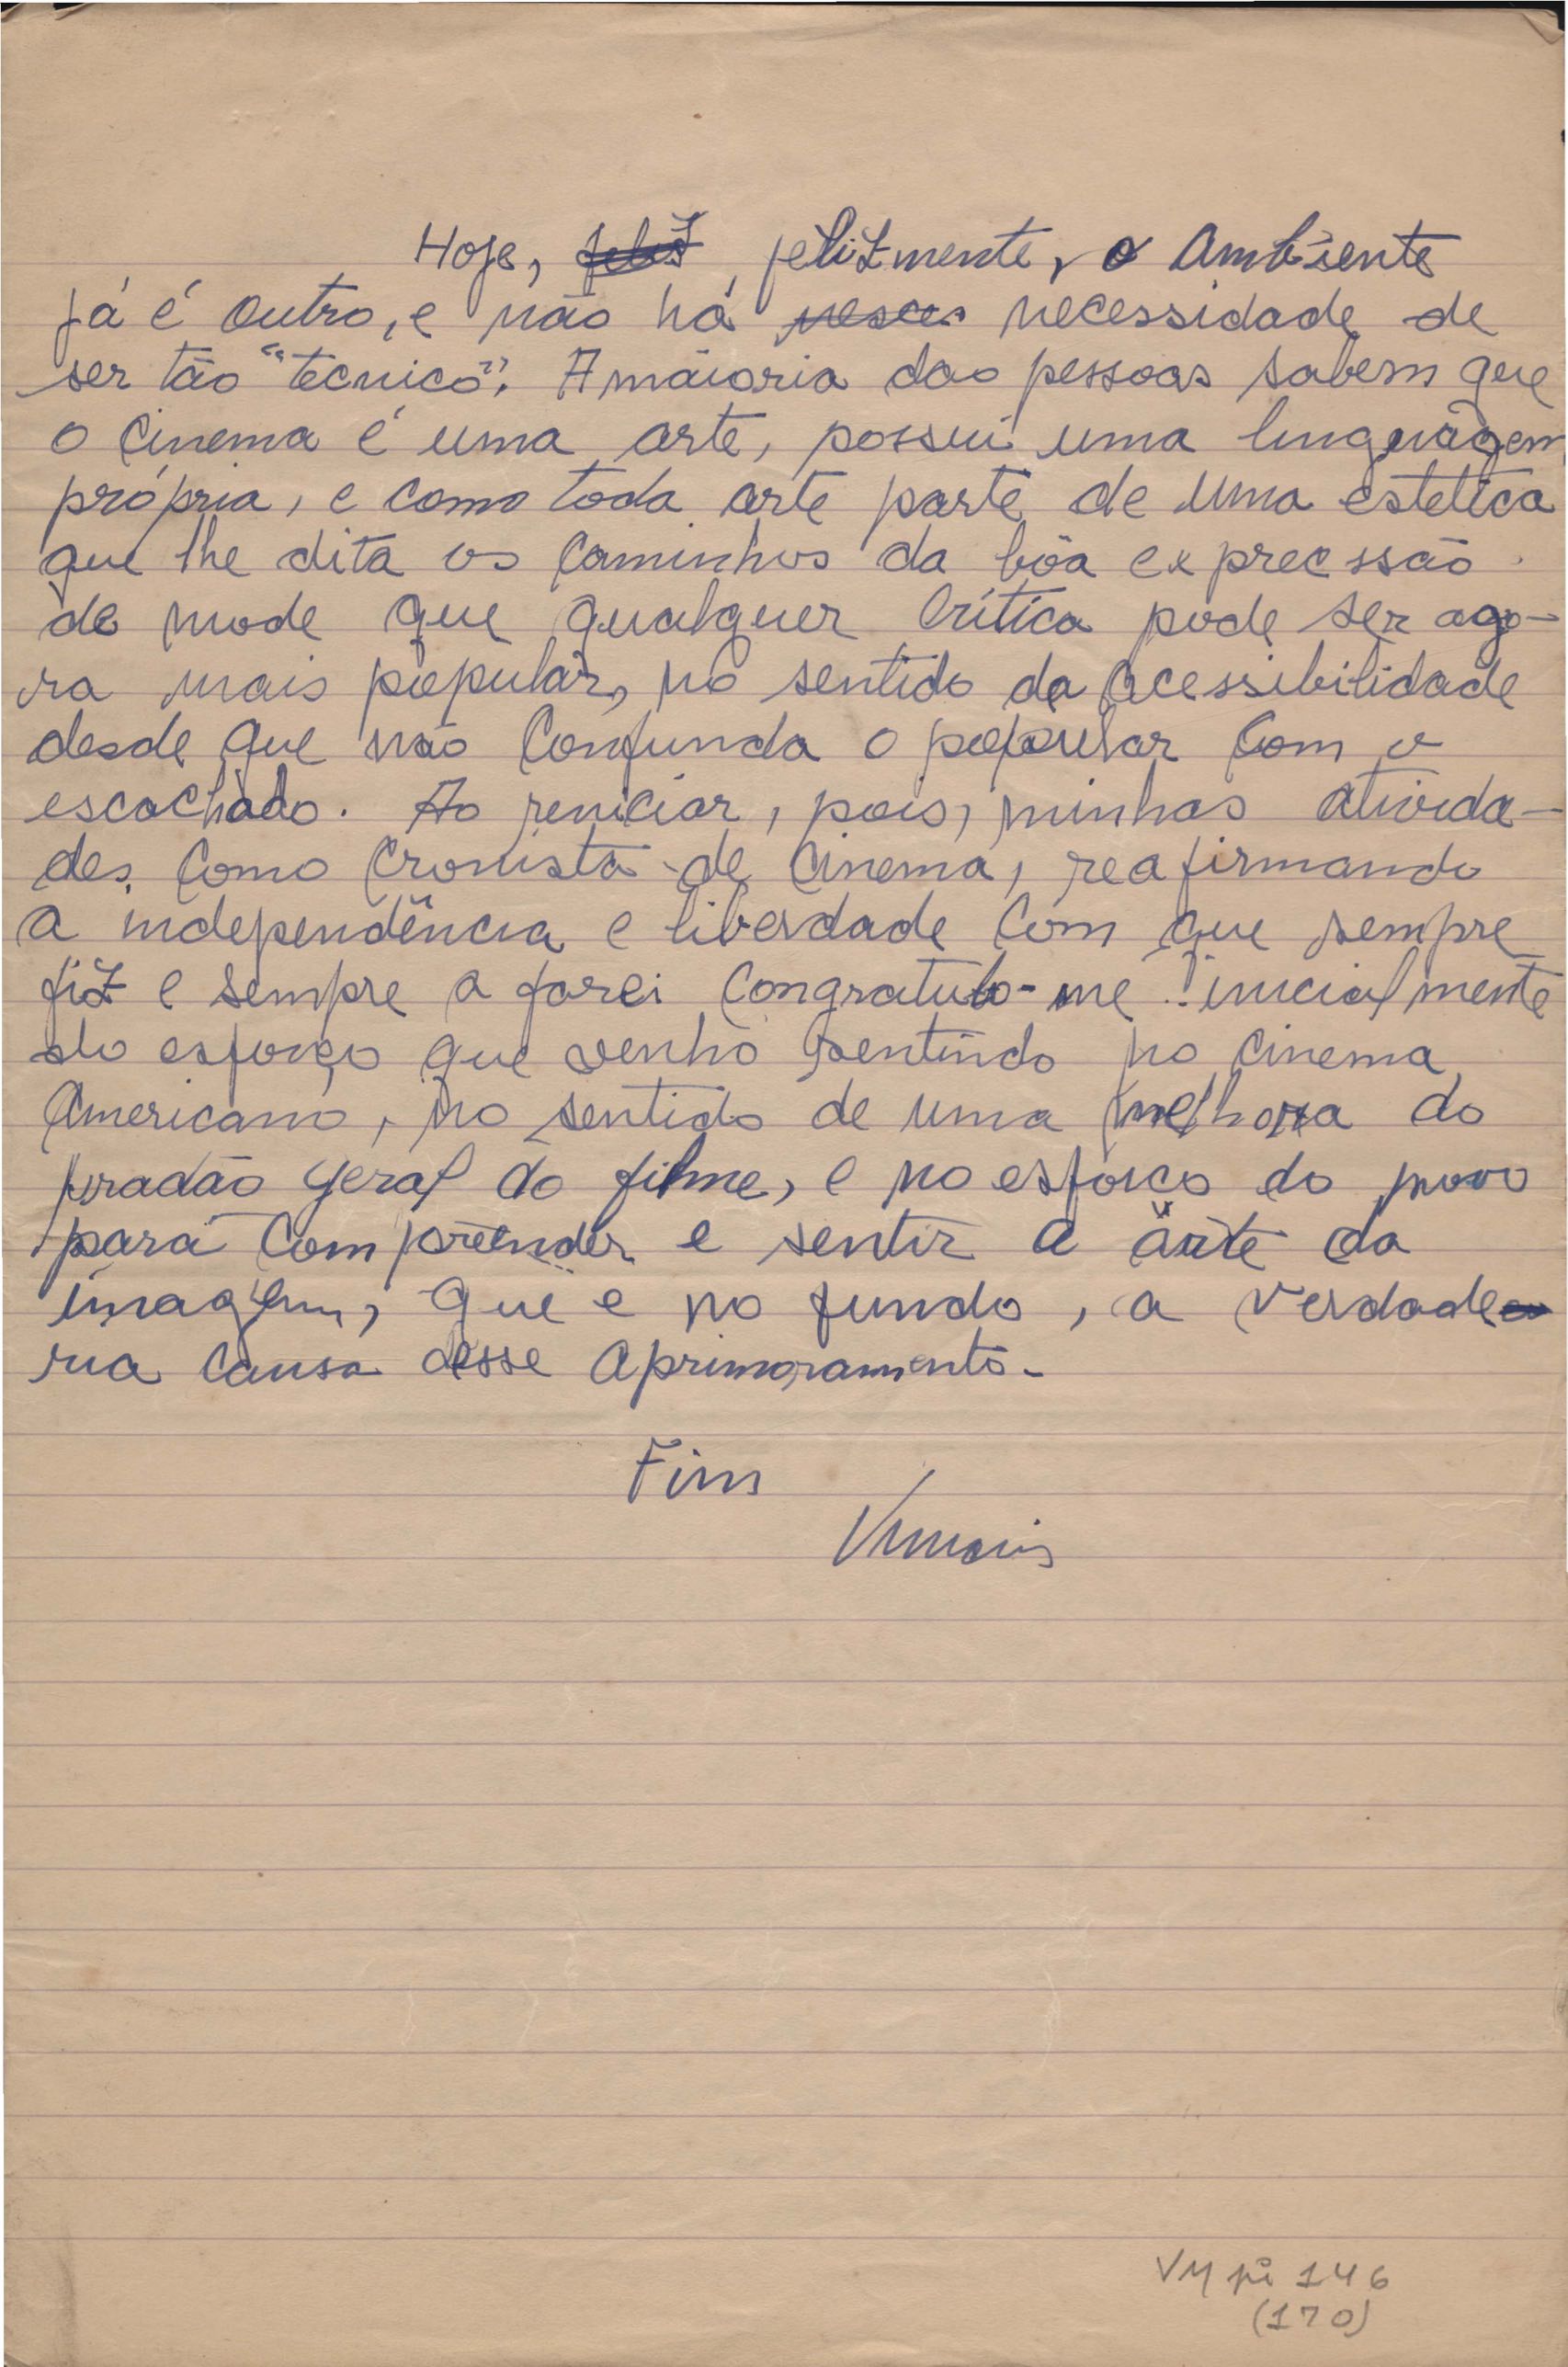 Hoje, felizmente, o ambiente
já é outro, e não há necessidade de
ser tão "tecnico". A maioria das pessoas sabem que
o cinema é uma arte, possui uma linguagem
própria, e como toda arte parte de uma estetica
que lhe dita os caminhos da bôa exprecssão
de mode que qualquer critica pode ser ago-
ra mais popular, no sentido da acessibilidade
desde que não confunda o popular com o
escachado. Ao reniciar, pois, minhas ativida-
des como cronista de cinema, reafirmando
a independência e liberdade com que sempre
fiz e sempre a farei congratulo-me inicialmente
do esforço que venho sentindo no cinema
americano, no sentido de uma melhora do
pradão geral do filme, e no esforço do povo
para compreender e sentir a arte da
imagem, que e no fundo, a verdade
ria causa desse aprimoramento.
Fim
Vinicius
VM pi 146
(170)